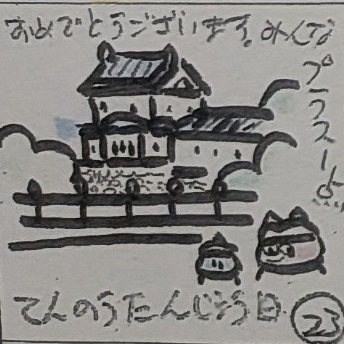 おめでとうございます。みんな
プラス一点
てんのうたんじょう日
23